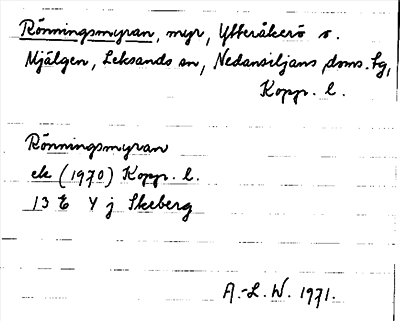 Rönningsmyran, myr, Ytteråkerö s.
Mjälgen, Leksands sn, Nedansiljans doms. tg,
Kopp. l.
Rönningsmyran
ek (1970) Kopp. l.
13 E 4 j Skeberg
A.-L. W. 1971.